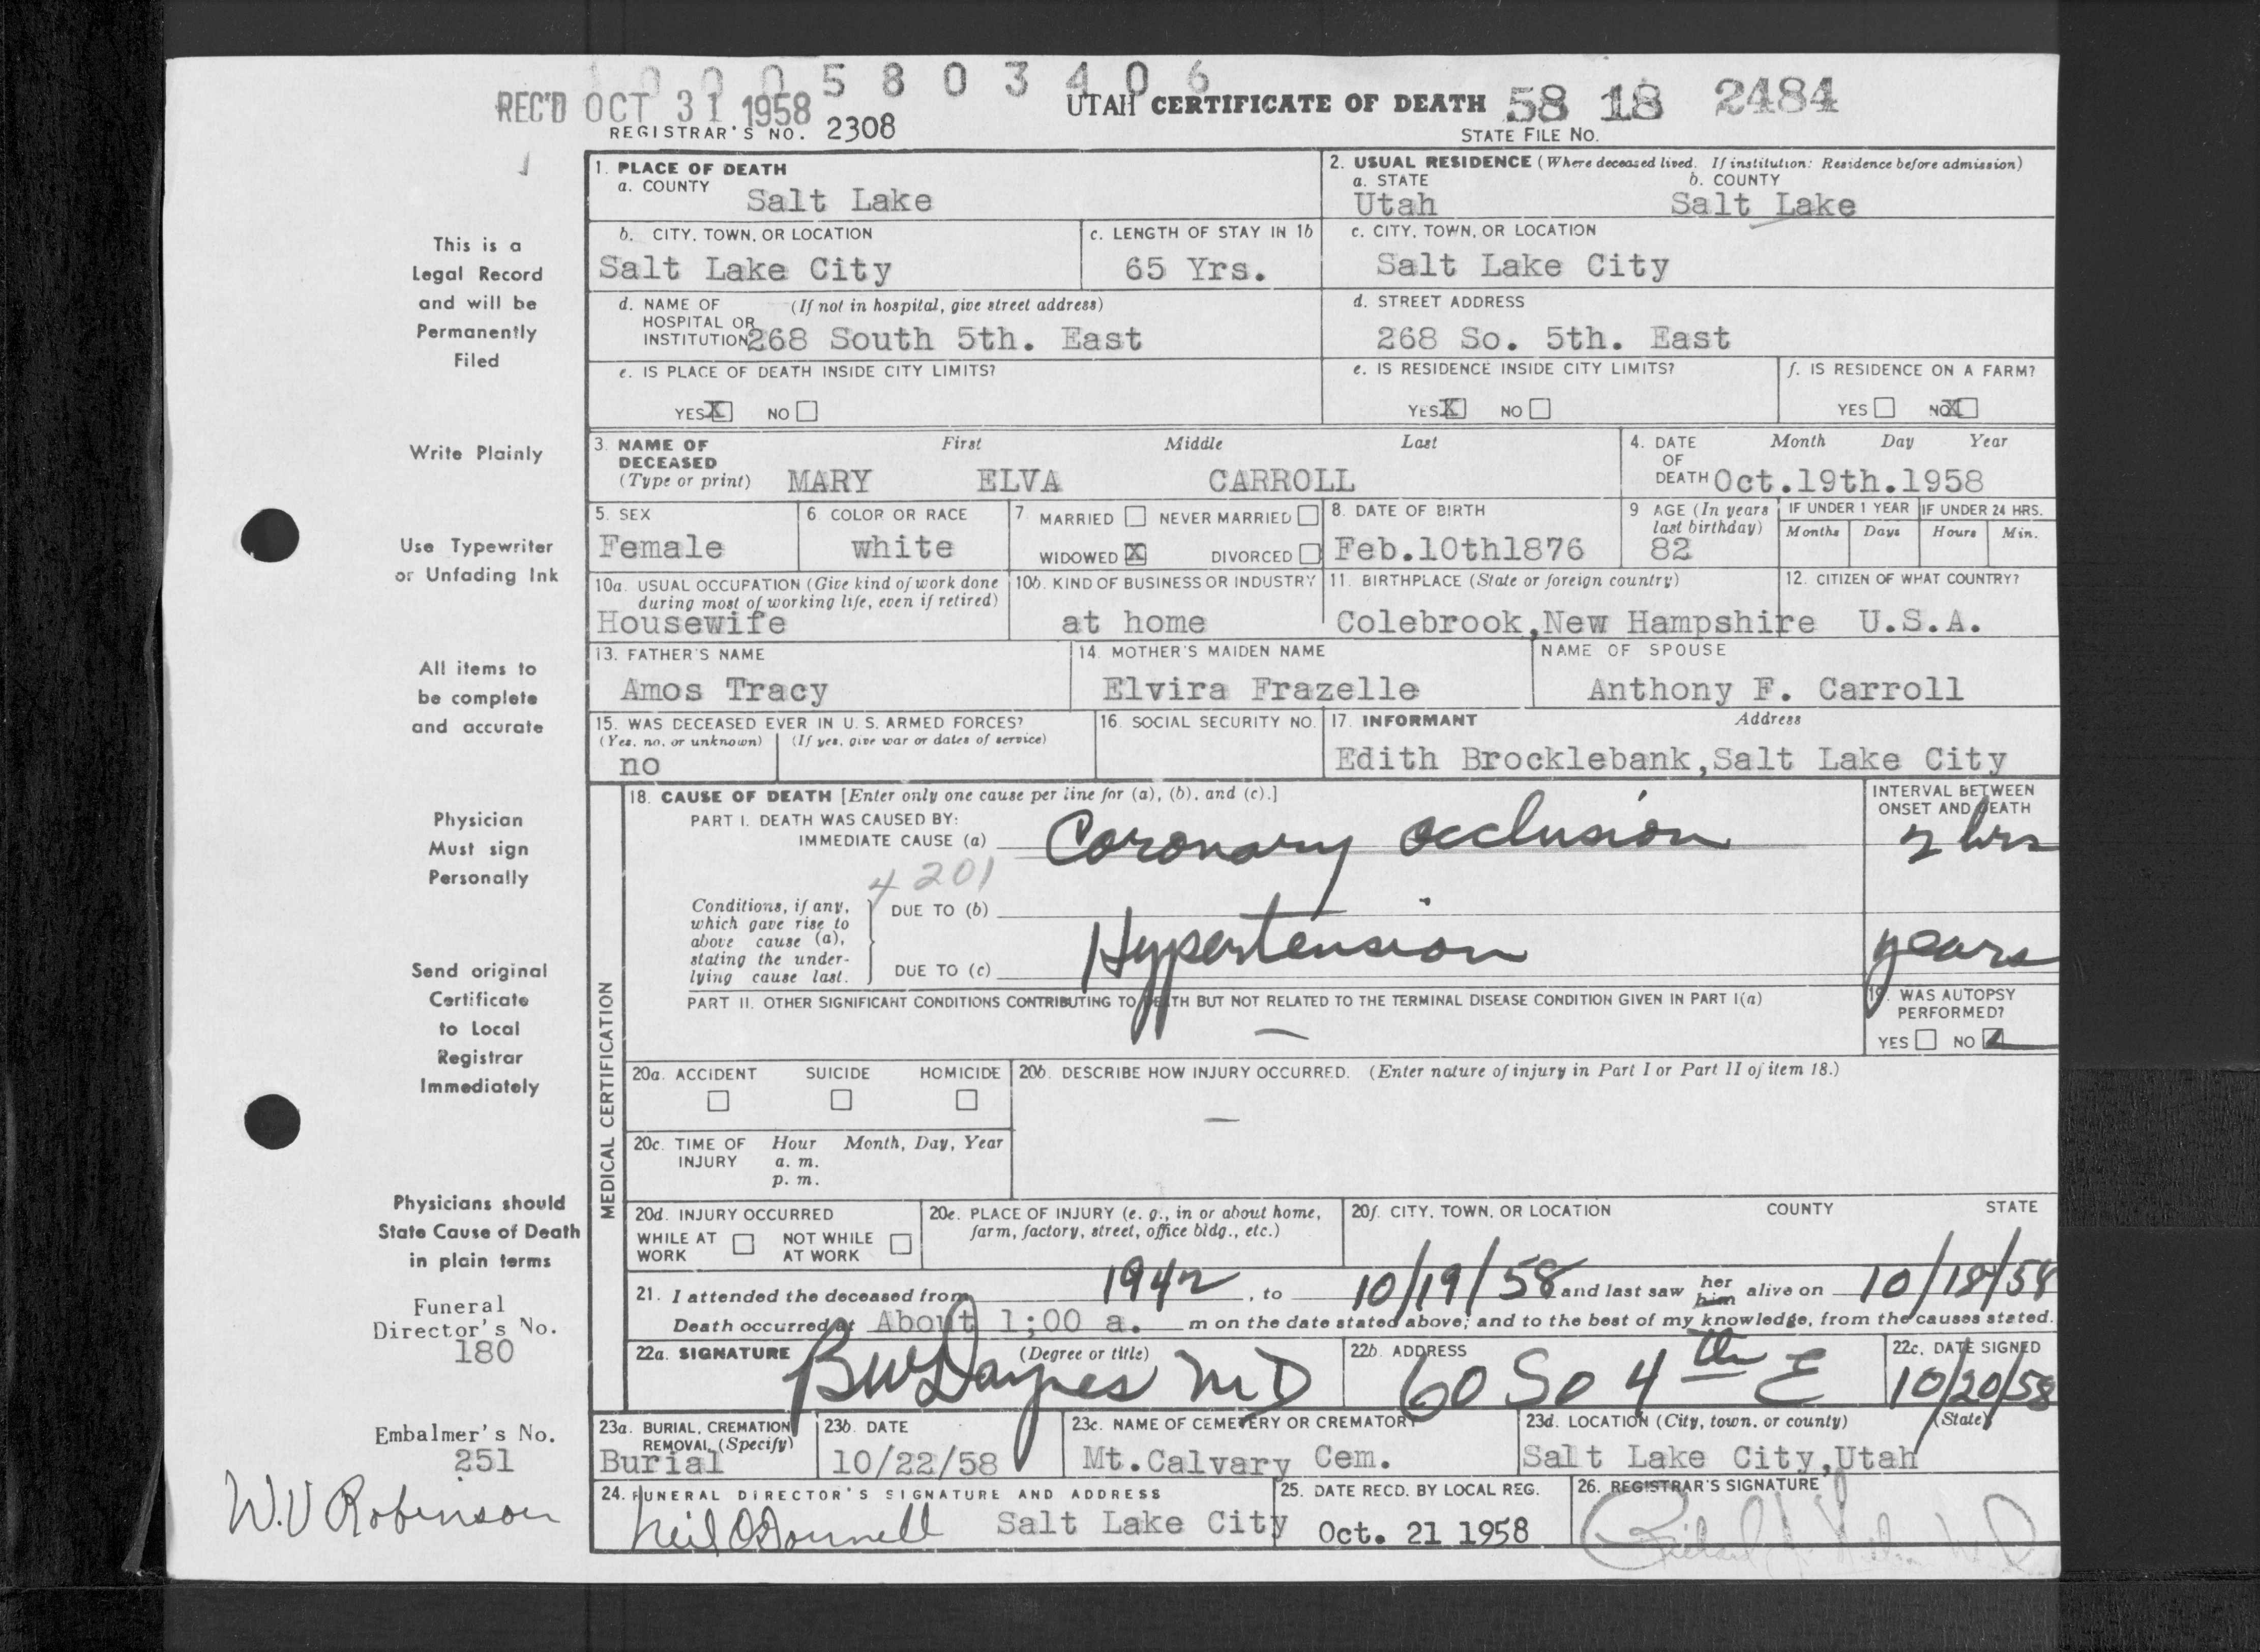 1005803406
REC'D OCT 31 1958
UTAH CERTIFICATE OF DEATH 58 18 2484
REGISTRAR'S NO. 2308
STATE FILE NO.
This is a
Legal Record
and will be
Permanently
Filed
Write Plainly
Use Typewriter
or Unfading Ink
All items to
be complete
and accurate
Physician
Must sign
Personally
Send original
Certificate
to Local
Registrar
Immediately
Physicians should
State Cause of Death
in plain terms
Funeral
Director's No.
180
Embalmer's No.
251
W.V Robinson
1. PLACE OF DEATH
a. COUNTY
Salt Lake
2. USUAL RESIDENCE (Where deceased lived. If institution: Residence before admission)
a. STATE b. COUNTY
Utah Salt Lake
b. CITY, TOWN, OR LOCATION
Salt Lake City
c. LENGTH OF STAY IN 1b
65 Yrs.
c. CITY, TOWN, OR LOCATION
Salt Lake City
d. NAME OF (If not in hospital, give street address)
HOSPITAL OR
INSTITUTION 268 South 5th. East
d. STREET ADDRESS
268 So. 5th. East
e. IS PLACE OF DEATH INSIDE CITY LIMITS?
YES X NO
e. IS RESIDENCE INSIDE CITY LIMITS?
YES X NO
f. IS RESIDENCE ON A FARM?
YES NO X
3. NAME OF First Middle Last
DECEASED
(Type or print) MARY ELVA CARROLL
4. DATE Month Day Year
OF
DEATH Oct.19th.1958
5. SEX
Female
6. COLOR OR RACE
white
7. MARRIED NEVER MARRIED
WIDOWED X DIVORCED
8. DATE OF BIRTH
Feb.10th1876
9 AGE (In years
last birthday)
82
IF UNDER 1 YEAR IF UNDER 24 HRS.
Months Days Hours Min.
10a. USUAL OCCUPATION (Give kind of work done
during most of working life, even if retired)
Housewife
10b. KIND OF BUSINESS OR INDUSTRY
at home
11. BIRTHPLACE (State or foreign country)
Colebrook,New Hampshire
12. CITIZEN OF WHAT COUNTRY?
U.S.A.
13. FATHER'S NAME
Amos Tracy
14. MOTHER'S MAIDEN NAME
Elvira Frazelle
NAME OF SPOUSE
Anthony F. Carroll
15. WAS DECEASED EVER IN U. S. ARMED FORCES?
(Yes, no, or unknown) (If yes, give war or dates of service)
no
16. SOCIAL SECURITY NO.
17. INFORMANT Address
Edith Brocklebank,Salt Lake City
MEDICAL CERTIFICATION
18. CAUSE OF DEATH [Enter only one cause per line for (a), (b), and (c).]
PART I. DEATH WAS CAUSED BY:
IMMEDIATE CAUSE (a) Coronary occlusion
INTERVAL BETWEEN
ONSET AND DEATH
2 hrs
4201
Conditions, if any,
which gave rise to
above cause (a),
stating the under-
lying cause last.
DUE TO (b)
DUE TO (c) Hypertension
years
PART II. OTHER SIGNIFICANT CONDITIONS CONTRIBUTING TO DEATH BUT NOT RELATED TO THE TERMINAL DISEASE CONDITION GIVEN IN PART I(a)
—
19. WAS AUTOPSY
PERFORMED?
YES NO
20a. ACCIDENT SUICIDE HOMICIDE
20b. DESCRIBE HOW INJURY OCCURRED. (Enter nature of injury in Part I or Part II of item 18.)
—
20c. TIME OF Hour Month, Day, Year
INJURY a. m.
p. m.
20d. INJURY OCCURRED
WHILE AT NOT WHILE
WORK AT WORK
20e. PLACE OF INJURY (e. g., in or about home,
farm, factory, street, office bldg., etc.)
20f. CITY, TOWN, OR LOCATION COUNTY STATE
21. I attended the deceased from 1942, to 10/19/58 and last saw her him alive on 10/18/58
Death occurred at About 1;00 a. m on the date stated above; and to the best of my knowledge, from the causes stated.
22a. SIGNATURE (Degree or title)
BW Daynes MD
22b. ADDRESS
60 So 4th E
22c. DATE SIGNED
10/20/58
23a. BURIAL, CREMATION
REMOVAL (Specify)
Burial
23b. DATE
10/22/58
23c. NAME OF CEMETERY OR CREMATORY
Mt.Calvary Cem.
23d. LOCATION (City, town, or county) (State)
Salt Lake City,Utah
24. FUNERAL DIRECTOR'S SIGNATURE AND ADDRESS
Neil O'Donnell Salt Lake City
25. DATE RECD. BY LOCAL REG.
Oct. 21 1958
26. REGISTRAR'S SIGNATURE
Richard